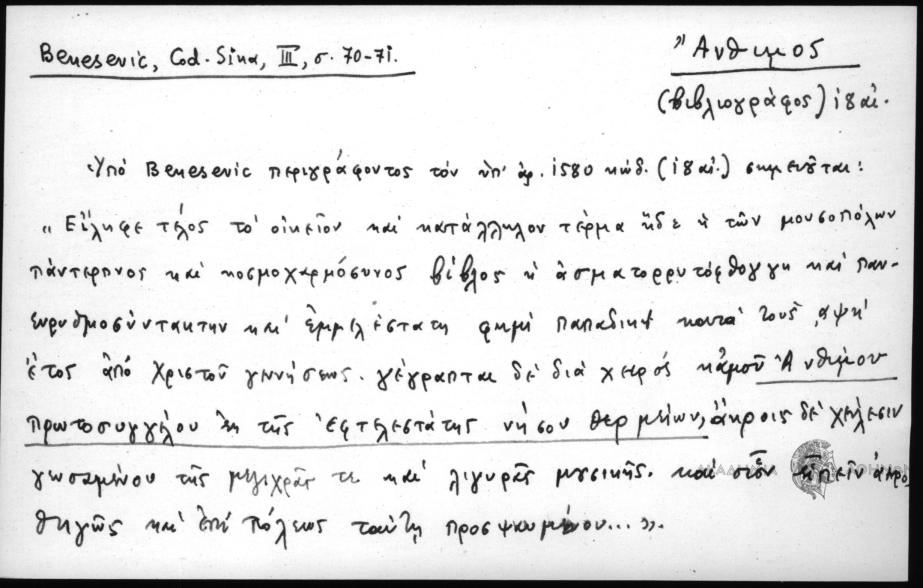 Benesevic, Cod. Sina, III, σ. 70-71.
Ἄνθιμος
(βιβλιογράφος) 18 αἰ.
Ὑπό Benesevic περιγράφοντος τόν ὑπ' ἀρ. 1580 κώδ. (18 αἰ.) σημειοῦται:
"Εἴληφε τέλος τό οἰκεῖον καί κατάλληλον τέρμα ἥδε ἡ τῶν μουσοπόλων
πάντερπνος καί κοσμοχαρμόσυνος βίβλος ἡ ἀσματορρυτόφθογγη καί παν-
ευρυθμοσύντακτην καί ἐμμελέστατη φημί παπαδική κατά τούς ͵αψκ'
ἔτος ἀπό Χριστοῦ γεννήσεως. γέγραπται δέ διά χειρός κἀμοῦ Ἀνθίμου
πρωτοσυγγέλου ἐκ τῆς εὐτελεστάτης νήσου Θερμείων, ἄκροις δέ χείλεσιν
γευσαμένου τῆς μελιχρᾶς τε καί λιγυρᾶς μουσικῆς. καί οἷον εἰπεῖν ἀκρο
θιγῶς καί ἐπί πόλεως ταύτῃ προσψαυμένου...».